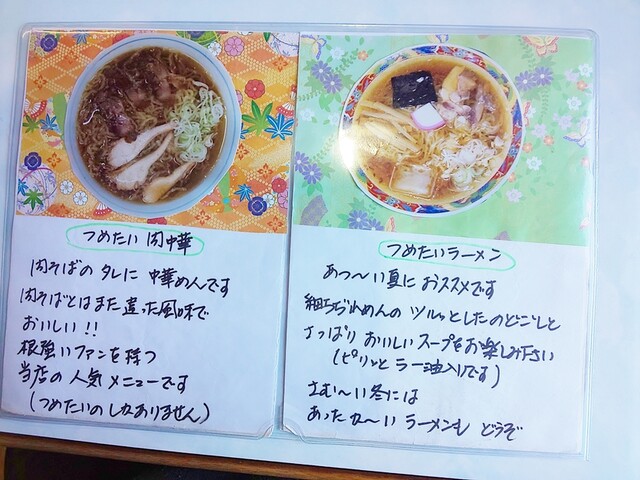 つめたい 肉中華
肉そばの タレに 中華めんです
肉そばとはまた違った風味で
おいしい!!
根強いファンを持つ
当店の 人気 メニューです
(つめたいのしかありません)
つめたいラーメン
あっ〜い夏に おススメです
細ちぢれめんの ツルッとしたのどごしと
さっぱり おいしい スープをお楽しみ下さい
(ピリッと ラー油入りです)
さむ〜い冬には
あったか〜い ラーメンも どうぞ